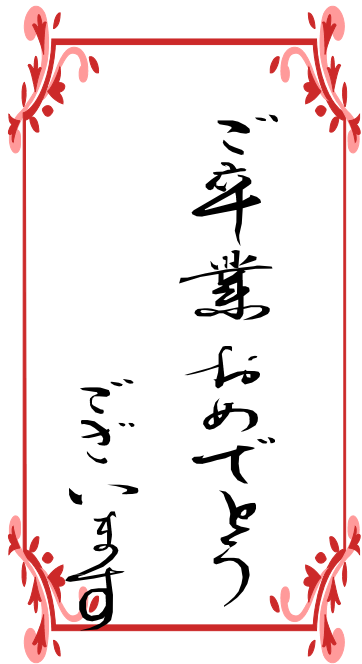 ご卒業おめでとう
ございます